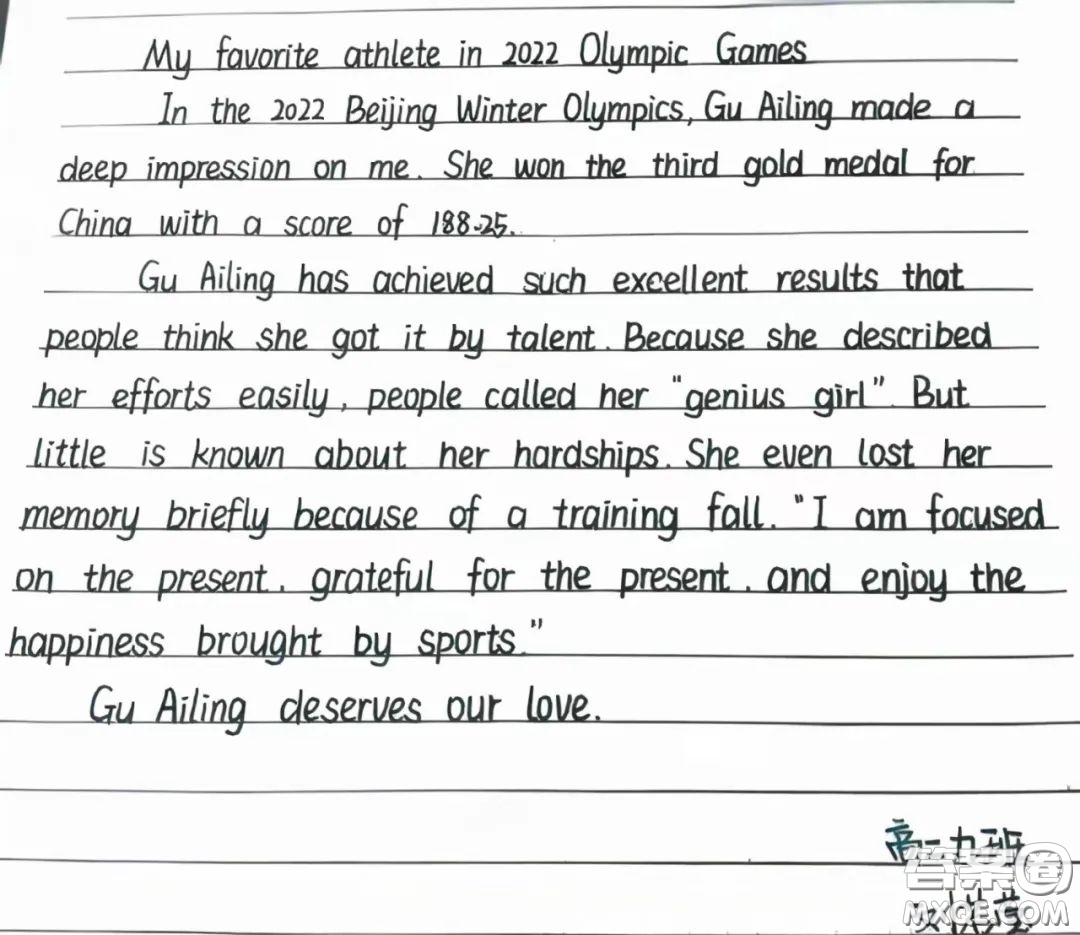 My favorite athlete in 2022 Olympic Games
In the 2022 Beijing Winter Olympics, Gu Ailing made a
deep impression on me. She won the third gold medal for
China with a score of 188.25.
Gu Ailing has achieved such excellent results that
people think she got it by talent. Because she described
her efforts easily, people called her "genius girl". But
little is known about her hardships. She even lost her
memory briefly because of a training fall. "I am focused
on the present, grateful for the present, and enjoy the
happiness brought by sports."
Gu Ailing deserves our love.
高一九班
答案圈
MXQE.COM